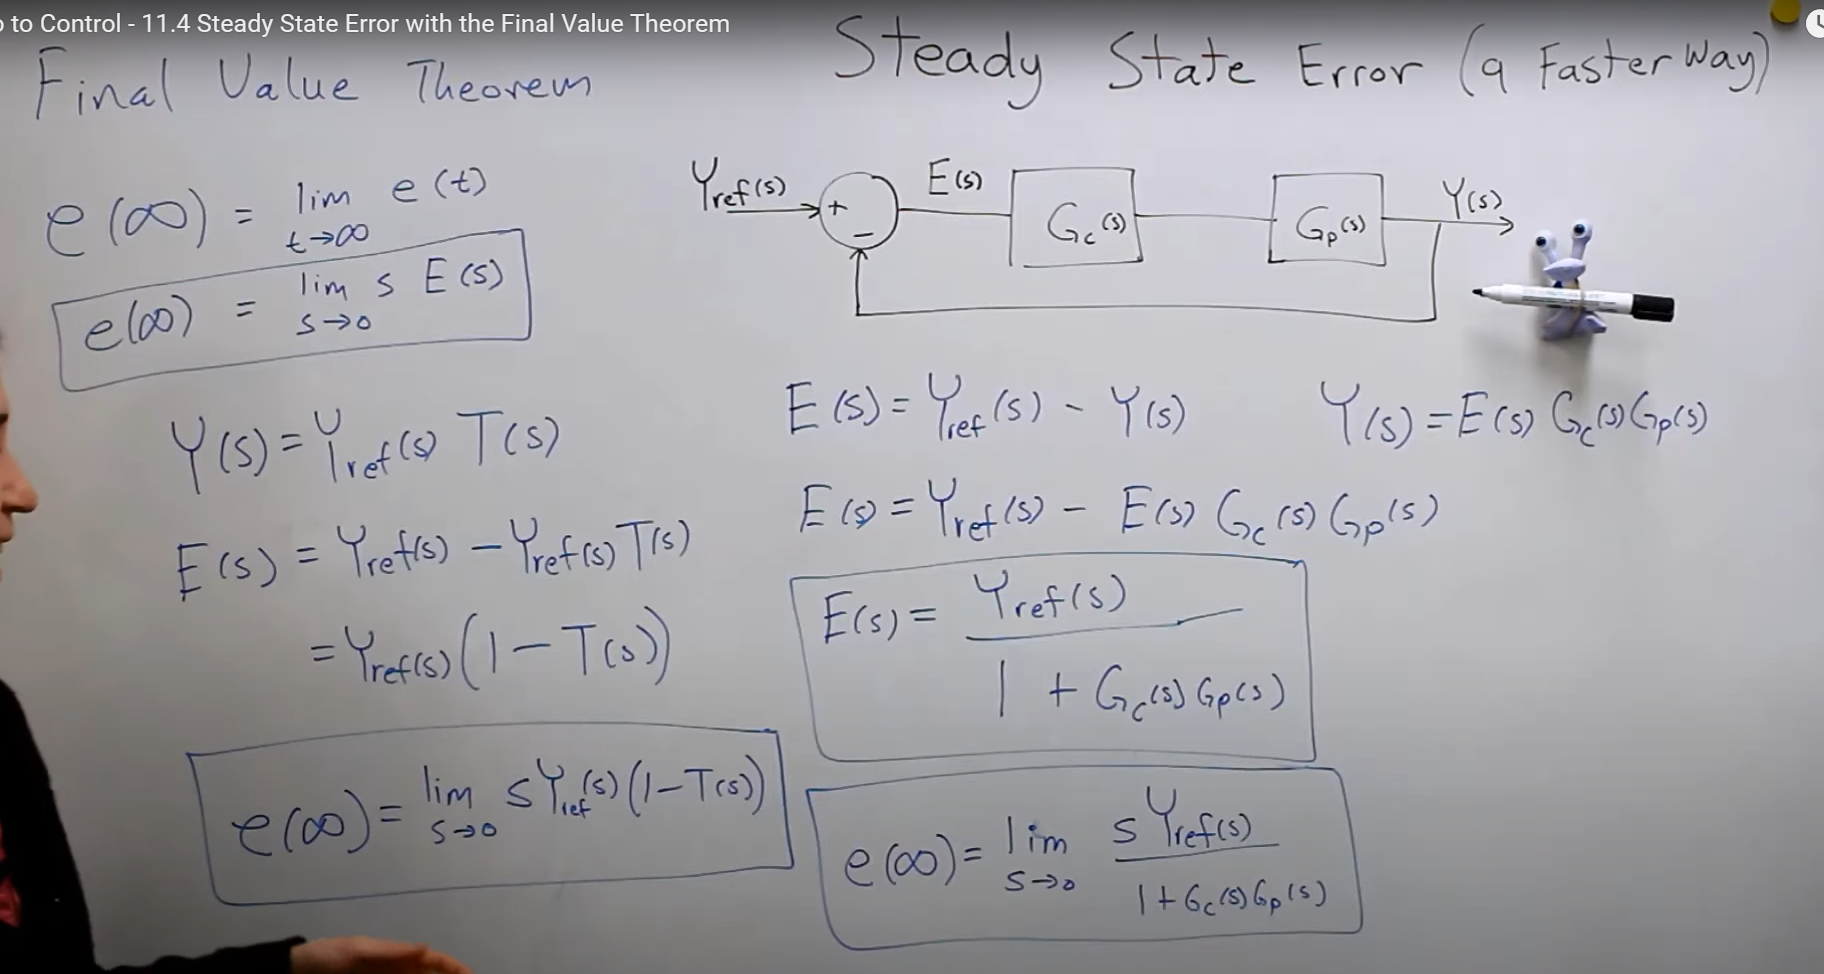 to Control - 11.4 Steady State Error with the Final Value Theorem
Final Value Theorem
e(∞) = lim e(t)
t→∞
e(∞) = lim s E(s)
s→0
Y(s) = Yref(s) T(s)
E(s) = Yref(s) - Yref(s) T(s)
= Yref(s) (1 - T(s))
e(∞) = lim s Yref(s) (1 - T(s))
s→0
Steady State Error (a Faster Way)
Yref(s)
+
-
E(s)
Gc(s)
Gp(s)
Y(s)
E(s) = Yref(s) - Y(s)
Y(s) = E(s) Gc(s) Gp(s)
E(s) = Yref(s) - E(s) Gc(s) Gp(s)
E(s) = Yref(s)
1 + Gc(s) Gp(s)
e(∞) = lim s Yref(s)
s→0 1 + Gc(s) Gp(s)